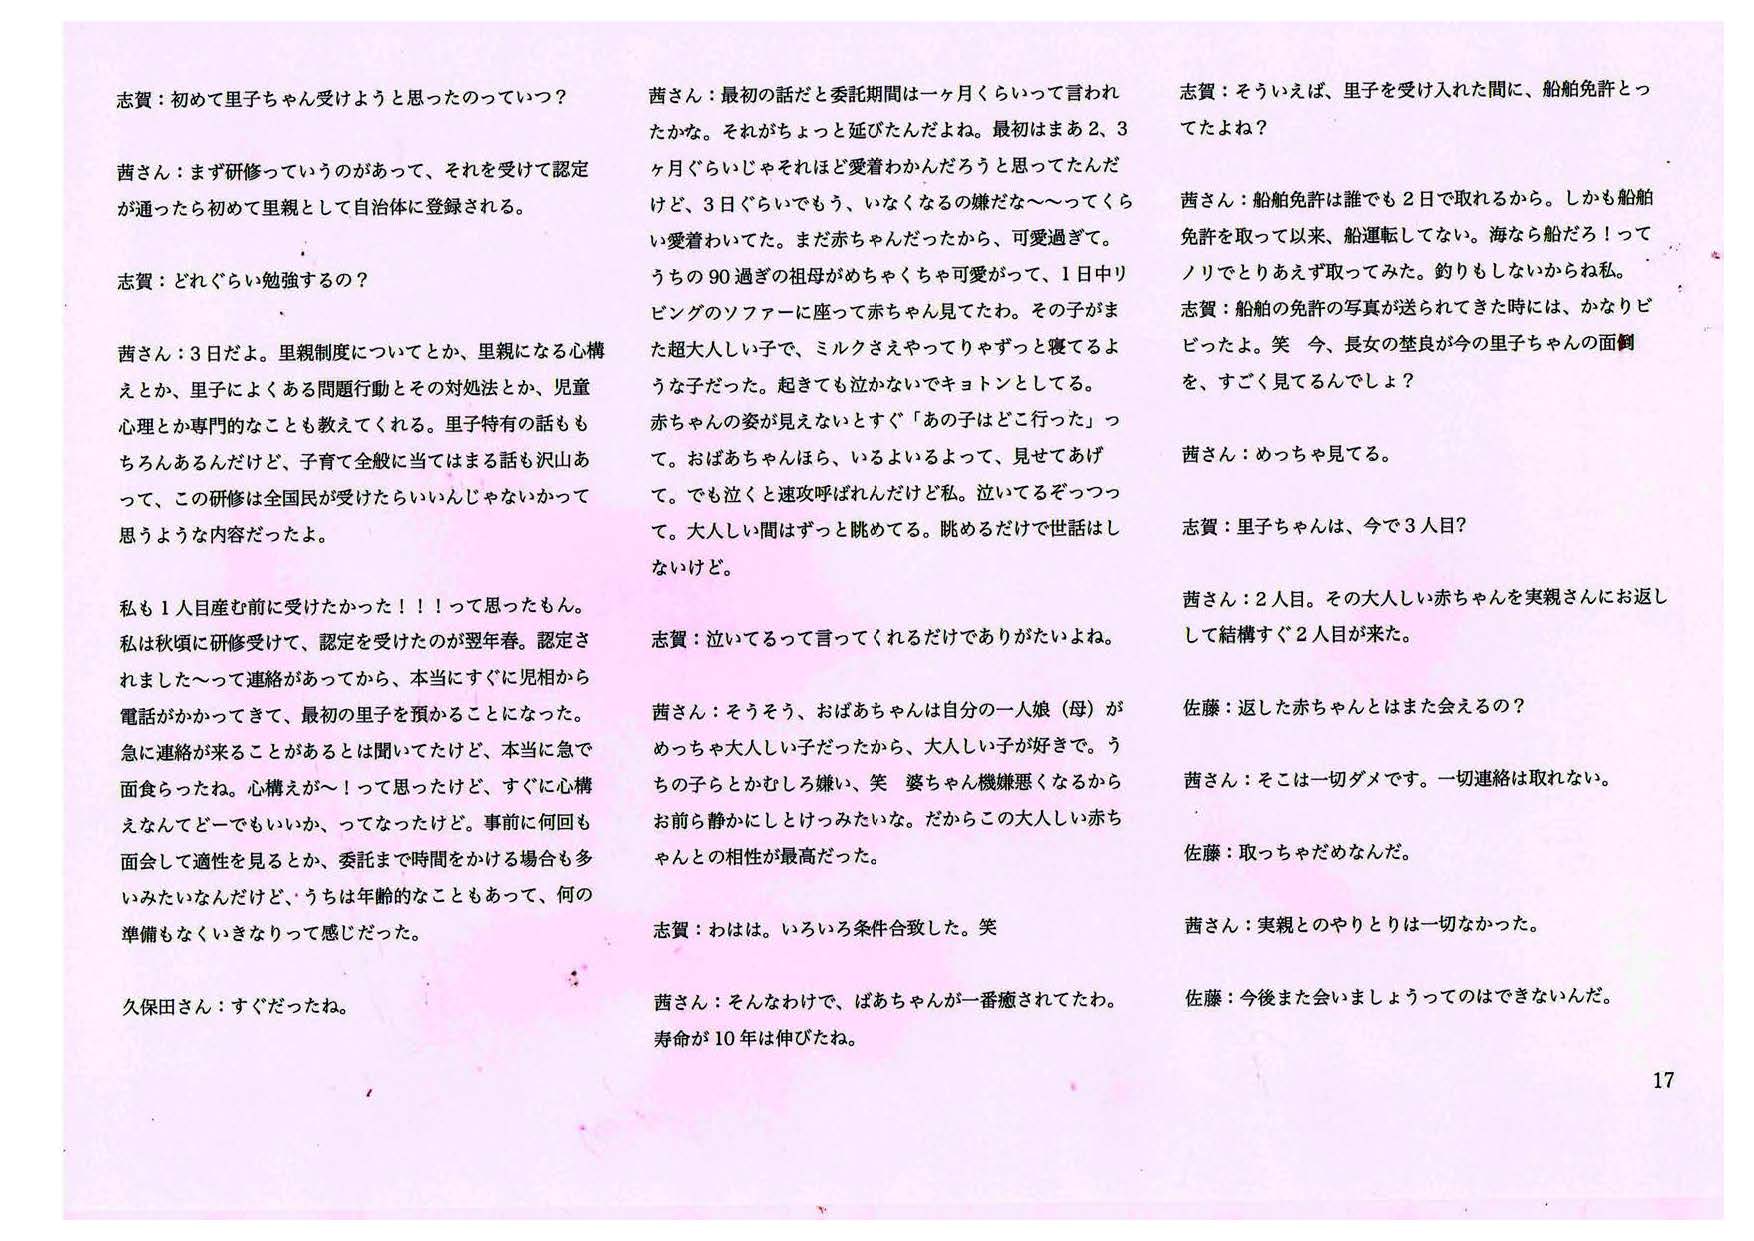 志賀：初めて里子ちゃん受けようと思ったのっていつ？
茜さん：まず研修っていうのがあって、それを受けて認定
が通ったら初めて里親として自治体に登録される。
志賀：どれぐらい勉強するの？
茜さん：3日だよ。里親制度についてとか、里親になる心構
えとか、里子によくある問題行動とその対処法とか、児童
心理とか専門的なことも教えてくれる。里子特有の話もも
ちろんあるんだけど、子育て全般に当てはまる話も沢山あ
って、この研修は全国民が受けたらいいんじゃないかって
思うような内容だったよ。
私も1人目産む前に受けたかった！！！って思ったもん。
私は秋頃に研修受けて、認定を受けたのが翌年春。認定さ
れました〜って連絡があってから、本当にすぐに児相から
電話がかかってきて、最初の里子を預かることになった。
急に連絡が来ることがあるとは聞いてたけど、本当に急で
面食らったね。心構えが〜！って思ったけど、すぐに心構
えなんてどーでもいいか、ってなったけど。事前に何回も
面会して適性を見るとか、委託まで時間をかける場合も多
いみたいなんだけど、うちは年齢的なこともあって、何の
準備もなくいきなりって感じだった。
久保田さん：すぐだったね。
茜さん：最初の話だと委託期間は一ヶ月くらいって言われ
たかな。それがちょっと延びたんだよね。最初はまあ2、3
ヶ月ぐらいじゃそれほど愛着わかんだろうと思ってたんだ
けど、3日ぐらいでもう、いなくなるの嫌だな〜〜ってくら
い愛着わいてた。まだ赤ちゃんだったから、可愛過ぎて。
うちの90過ぎの祖母がめちゃくちゃ可愛がって、1日中リ
ビングのソファーに座って赤ちゃん見てたわ。その子がま
た超大人しい子で、ミルクさえやってりゃずっと寝てるよ
うな子だった。起きても泣かないでキョトンとしてる。
赤ちゃんの姿が見えないとすぐ「あの子はどこ行った」っ
て。おばあちゃんほら、いるよいるよって、見せてあげ
て。でも泣くと速攻呼ばれんだけど私。泣いてるぞっつっ
て。大人しい間はずっと眺めてる。眺めるだけで世話はし
ないけど。
志賀：泣いてるって言ってくれるだけでありがたいよね。
茜さん：そうそう、おばあちゃんは自分の一人娘（母）が
めっちゃ大人しい子だったから、大人しい子が好きで。う
ちの子らとかむしろ嫌い、笑　婆ちゃん機嫌悪くなるから
お前ら静かにしとけっみたいな。だからこの大人しい赤ち
ゃんとの相性が最高だった。
志賀：わはは。いろいろ条件合致した。笑
茜さん：そんなわけで、ばあちゃんが一番癒されてたわ。
寿命が10年は伸びたね。
志賀：そういえば、里子を受け入れた間に、船舶免許とっ
てたよね？
茜さん：船舶免許は誰でも2日で取れるから。しかも船舶
免許を取って以来、船運転してない。海なら船だろ！って
ノリでとりあえず取ってみた。釣りもしないからね私。
志賀：船舶の免許の写真が送られてきた時には、かなりビ
ビったよ。笑　今、長女の埜良が今の里子ちゃんの面倒
を、すごく見てるんでしょ？
茜さん：めっちゃ見てる。
志賀：里子ちゃんは、今で3人目?
茜さん：2人目。その大人しい赤ちゃんを実親さんにお返し
して結構すぐ2人目が来た。
佐藤：返した赤ちゃんとはまた会えるの？
茜さん：そこは一切ダメです。一切連絡は取れない。
佐藤：取っちゃだめなんだ。
茜さん：実親とのやりとりは一切なかった。
佐藤：今後また会いましょうってのはできないんだ。
17